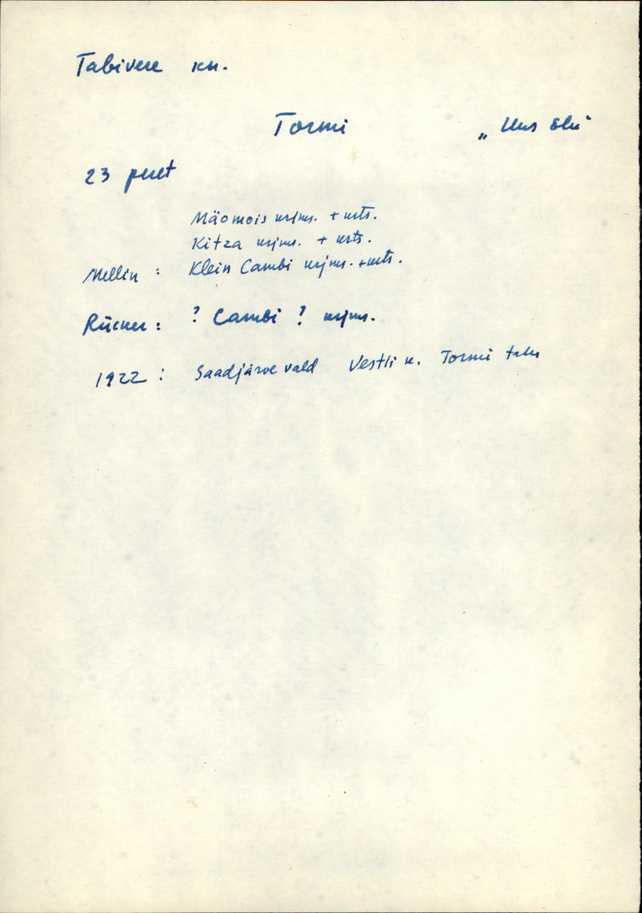 Tabivere kn.
Tormi „Uus elu"
23 peret
Mäomois krjms. + kрts.
Kitza krjms. + krts.
Mellin : Klein Cambi krjms. + krts.
Rücker : ? Cambi ? krjms.
1922 : Saadjärve vald Vestli k. Tormi talu